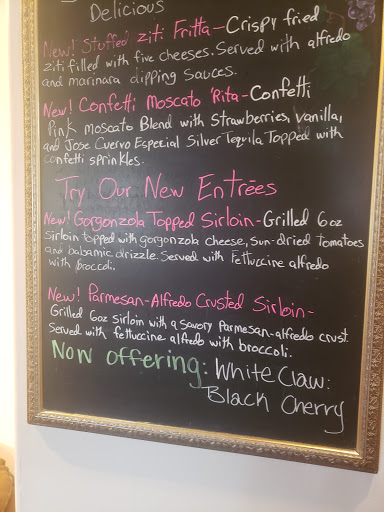 Delicious
New! Stuffed Ziti Fritta-Crispy fried
ziti filled with five cheeses. Served with alfredo
and marinara dipping sauces.
New! Confetti Moscato 'Rita-Confetti
Pink moscato Blend with Strawberries, Vanilla,
and Jose Cuervo Especial Silver Tequila Topped with
confetti sprinkles.
Try Our New Entrēes
New! Gorgonzola Topped Sirloin-Grilled 6oz
sirloin topped with gorgonzola cheese, sun-dried tomatoes
and balsamic drizzle. Served with Fettuccine alfredo
with broccoli.
New! Parmesan-Alfredo Crusted Sirloin-
Grilled 6oz sirloin with a savory parmesan-alfredo crust.
Served with fettuccine alfredo with broccoli.
Now offering: White Claw:
Black Cherry